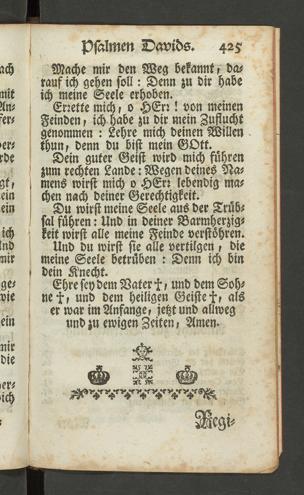 Psalmen Davids. 425
Mache mir den Weg bekannt, da-
rauf ich gehen soll: Denn zu dir habe
ich meine Seele erhoben.
Errette mich, o HErr! von meinen
Feinden, ich habe zu dir mein Zuflucht
genommen: Lehre mich deinen Willen
thun, denn du bist mein GOtt.
Dein guter Geist wird mich führen
zum rechten Lande: Wegen deines Na-
mens wirst mich o HErr lebendig ma-
chen nach deiner Gerechtigkeit.
Du wirst meine Seele aus der Trüb-
sal führen: Und in deiner Barmherzig-
keit wirst alle meine Feinde verstöhren.
Und du wirst sie alle vertilgen, die
meine Seele betrüben: Denn ich bin
dein Knecht.
Ehre sey dem Vater †, und dem Soh-
ne †, und dem heiligen Geiste †, als
er war im Anfange, jetzt und allweg
und zu ewigen Zeiten, Amen.
Regi-